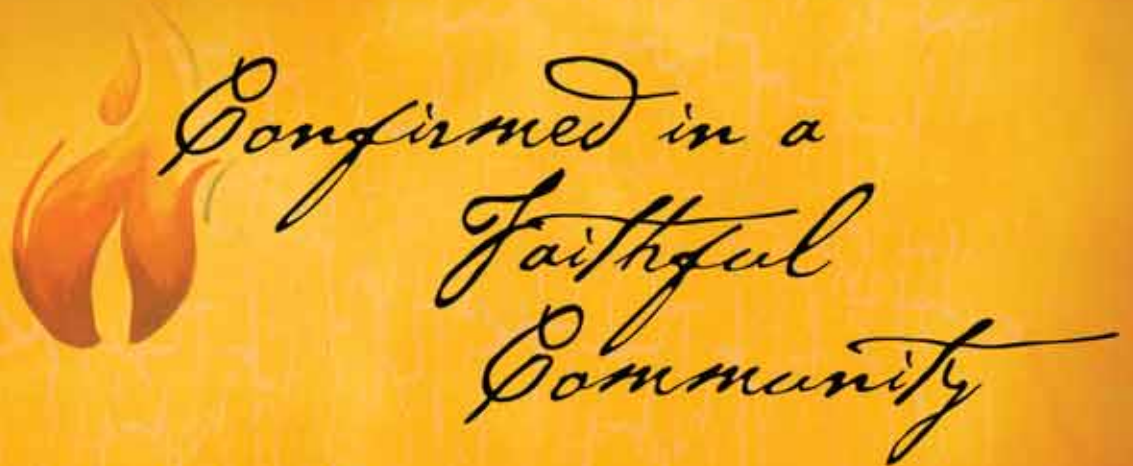 Confirmed in a
Faithful
Community